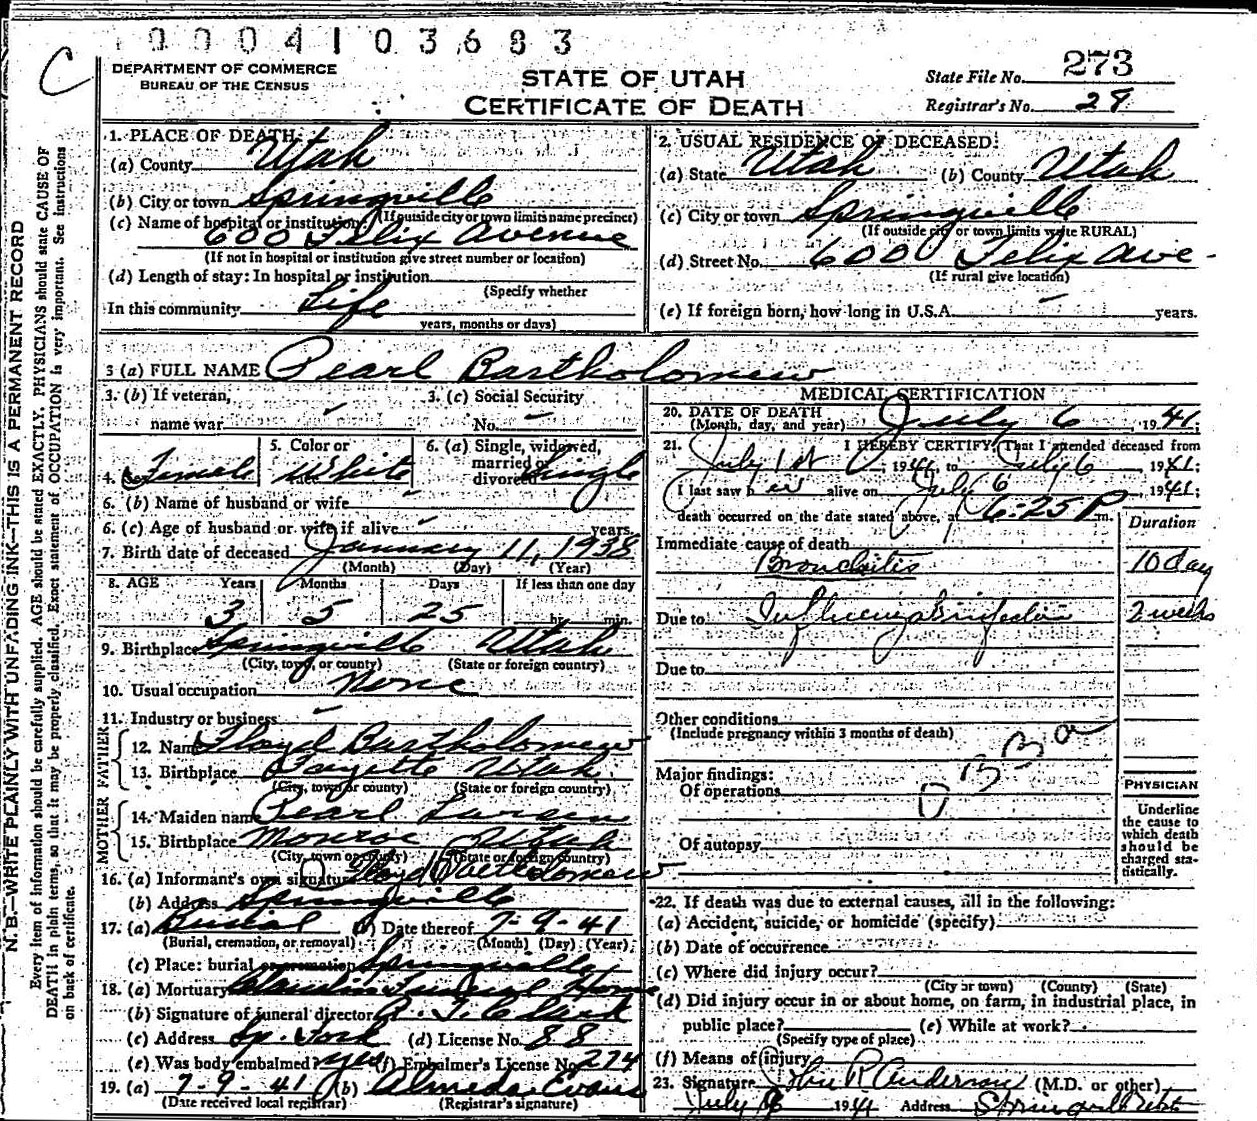 0004103683
C
DEPARTMENT OF COMMERCE
BUREAU OF THE CENSUS
STATE OF UTAH
CERTIFICATE OF DEATH
State File No. 273
Registrar's No. 28
N.B.—WRITE PLAINLY WITH UNFADING INK—THIS IS A PERMANENT RECORD
Every item of information should be carefully supplied. AGE should be stated EXACTLY. PHYSICIANS should state CAUSE OF
DEATH in plain terms, so that it may be properly classified. Exact statement of OCCUPATION is very important. See instructions
on back of certificate.
1. PLACE OF DEATH:
(a) County Utah
(b) City or town Springville
(If outside city or town limits name precinct)
(c) Name of hospital or institution:
600 Felix Avenue
(If not in hospital or institution give street number or location)
(d) Length of stay: In hospital or institution
(Specify whether
In this community Life
years, months or days)
2. USUAL RESIDENCE OF DECEASED:
(a) State Utah (b) County Utah
(c) City or town Springville
(If outside city or town limits write RURAL)
(d) Street No. 600 Felix Ave.
(If rural give location)
(e) If foreign born, how long in U.S.A. years.
3 (a) FULL NAME Pearl Bartholomew
3. (b) If veteran,
name war
3. (c) Social Security
No.
4. Sex Female
5. Color or
race White
6. (a) Single, widowed,
married or
divorced Single
6. (b) Name of husband or wife
6. (c) Age of husband or wife if alive years.
7. Birth date of deceased January 11, 1938
(Month) (Day) (Year)
8. AGE Years Months Days If less than one day
3 5 25 hr. min.
9. Birthplace Springville Utah
(City, town, or county) (State or foreign country)
10. Usual occupation None
11. Industry or business
FATHER
12. Name Floyd Bartholomew
13. Birthplace Fayette Utah
(City, town or county) (State or foreign country)
MOTHER
14. Maiden name Pearl
15. Birthplace Monroe Utah
(City, town or county) (State or foreign country)
16. (a) Informant's own signature Floyd Bartholomew
(b) Address Springville
17. (a) Burial (b) Date thereof 7-9-41
(Burial, cremation, or removal) (Month) (Day) (Year)
(c) Place: burial or cremation Springville
18. (a) Mortuary Funeral Home
(b) Signature of funeral director
(c) Address Sp. Fork (d) License No. 88
(e) Was body embalmed? yes (f) Embalmer's License No. 274
19. (a) 7-9-41 (b) Almeda Evans
(Date received local registrar) (Registrar's signature)
MEDICAL CERTIFICATION
20. DATE OF DEATH
(Month, day, and year) July 6, 1941;
21. I HEREBY CERTIFY, That I attended deceased from
July 1st, 1941, to July 6, 1941;
I last saw her alive on July 6, 1941;
death occurred on the date stated above, at 6:25 P m.
Duration
Immediate cause of death
Bronchitis 10 day
Due to Influenza infection 2 weeks
Due to
Other conditions
(Include pregnancy within 3 months of death)
Major findings:
Of operations
Of autopsy
PHYSICIAN
Underline
the cause to
which death
should be
charged sta-
tistically.
22. If death was due to external causes, fill in the following:
(a) Accident, suicide, or homicide (specify)
(b) Date of occurrence
(c) Where did injury occur?
(City or town) (County) (State)
(d) Did injury occur in or about home, on farm, in industrial place, in
public place? (e) While at work?
(Specify type of place)
(f) Means of injury
23. Signature Anderson (M.D. or other)
July 1941 Address Springville Utah